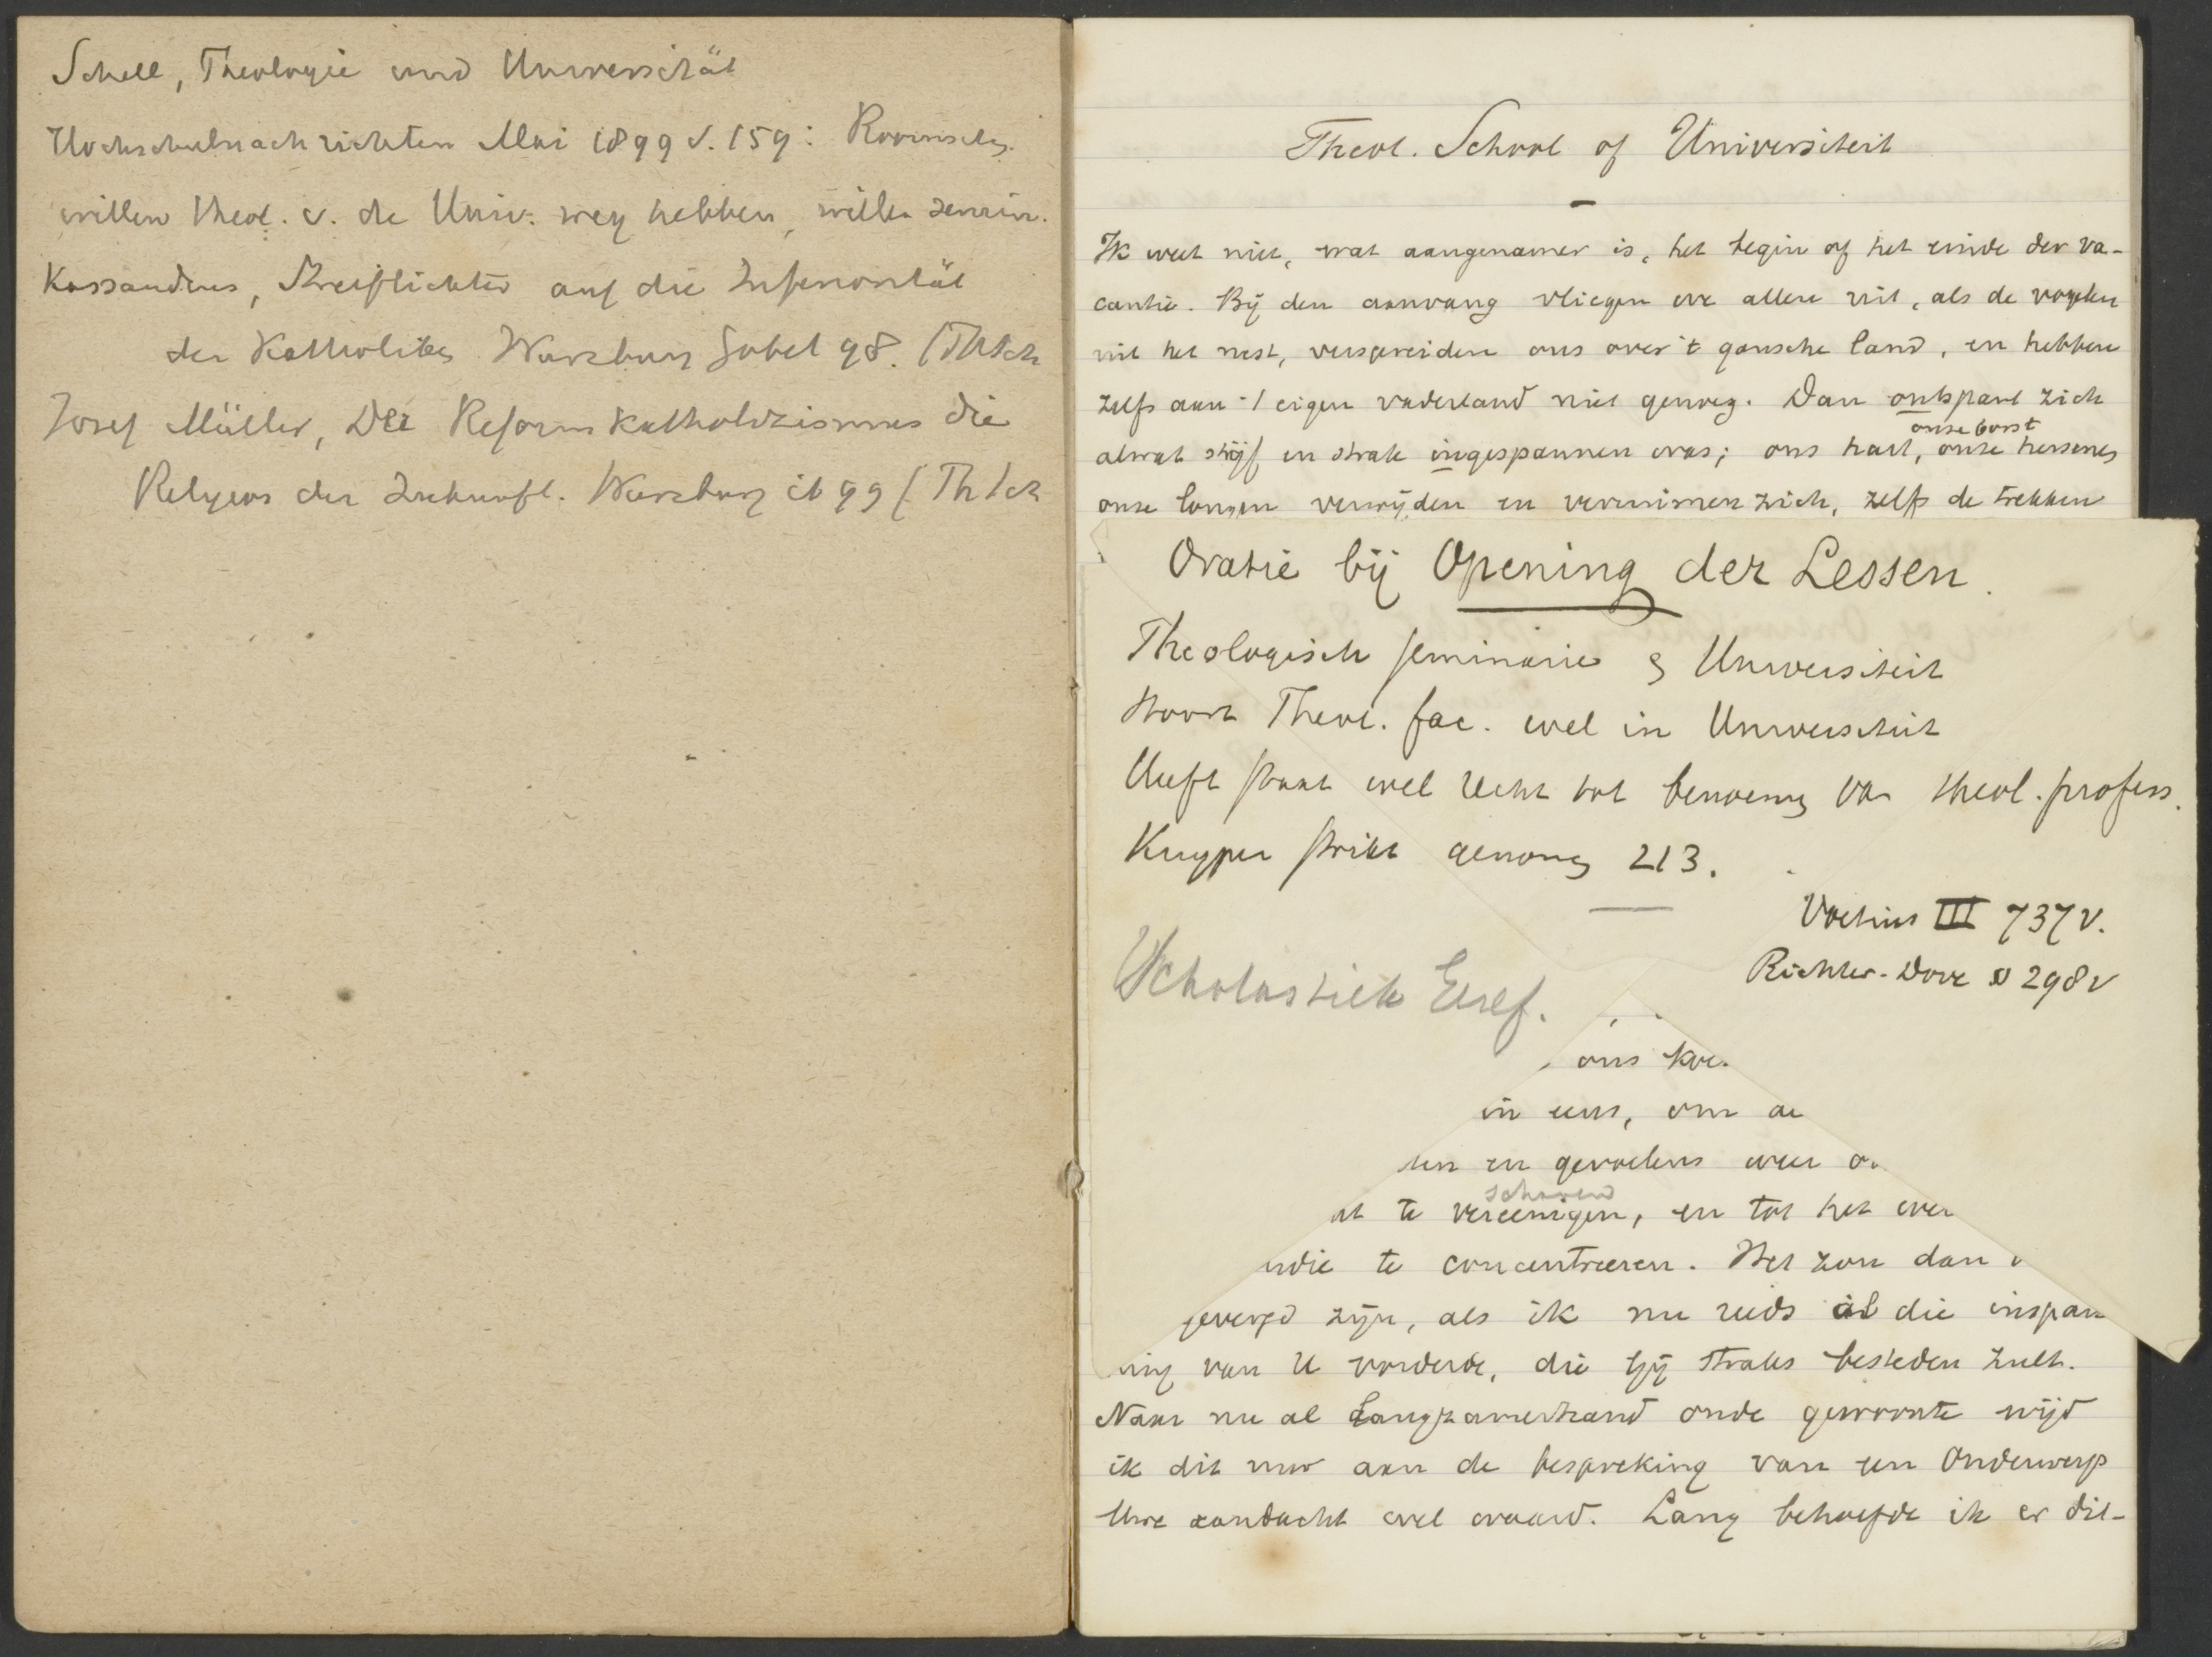 Schell, Theologie und Universität
Hochschulnachrichten Mai 1899 S. 159: Roomschen
willen theol. v. de Univ. weg hebben, willen semin.
Kassandrus, Streiflichter auf die Inferiorität
der Katholiken Wurzburg Gobel 98. (Th
Josef Müller, Der Reformkatholizismus die
Religion der Zukunft. Wurzburg ib 99 (Th
Theol. School of Universiteit
Ik weet niet, wat aangenamer is, het begin of het einde der va-
cantie. Bij den aanvang vliegen we allen uit, als de vogelen
uit het nest, verspreiden ons over 't gansche land, en hebben
zelfs aan 't eigen vaderland niet genoeg. Dan ontspant zich
alwat stijf en strak ingespannen was; ons hart, onze borst onze hersenen
onze longen verwijden en verruimen zich, zelfs de trekken
Oratie bij Opening der Lessen.
Theologisch seminarie & Universiteit
Hoort Theol. fac. wel in Universiteit
Heeft staat wel recht tot benoeming van theol. profess.
Kuyper strikt genomen 213.
Voetius III 737 v.
Richter-Dove S 298 v
Scholastiek Eref.
ons
in eens, om
en gevoelens weer
te vereenigen, en tot het
schoren
te concentreeren. Het zou dan
gevergd zijn, als ik nu reeds al die inspan
ning van U vorderde, die gij straks besteden zult.
Naar nu al langzamerhand oude gewoonte wijd
ik dit uur aan de bespreking van een onderwerp
Uwe aandacht wel waard. Lang behoefde ik er dit-